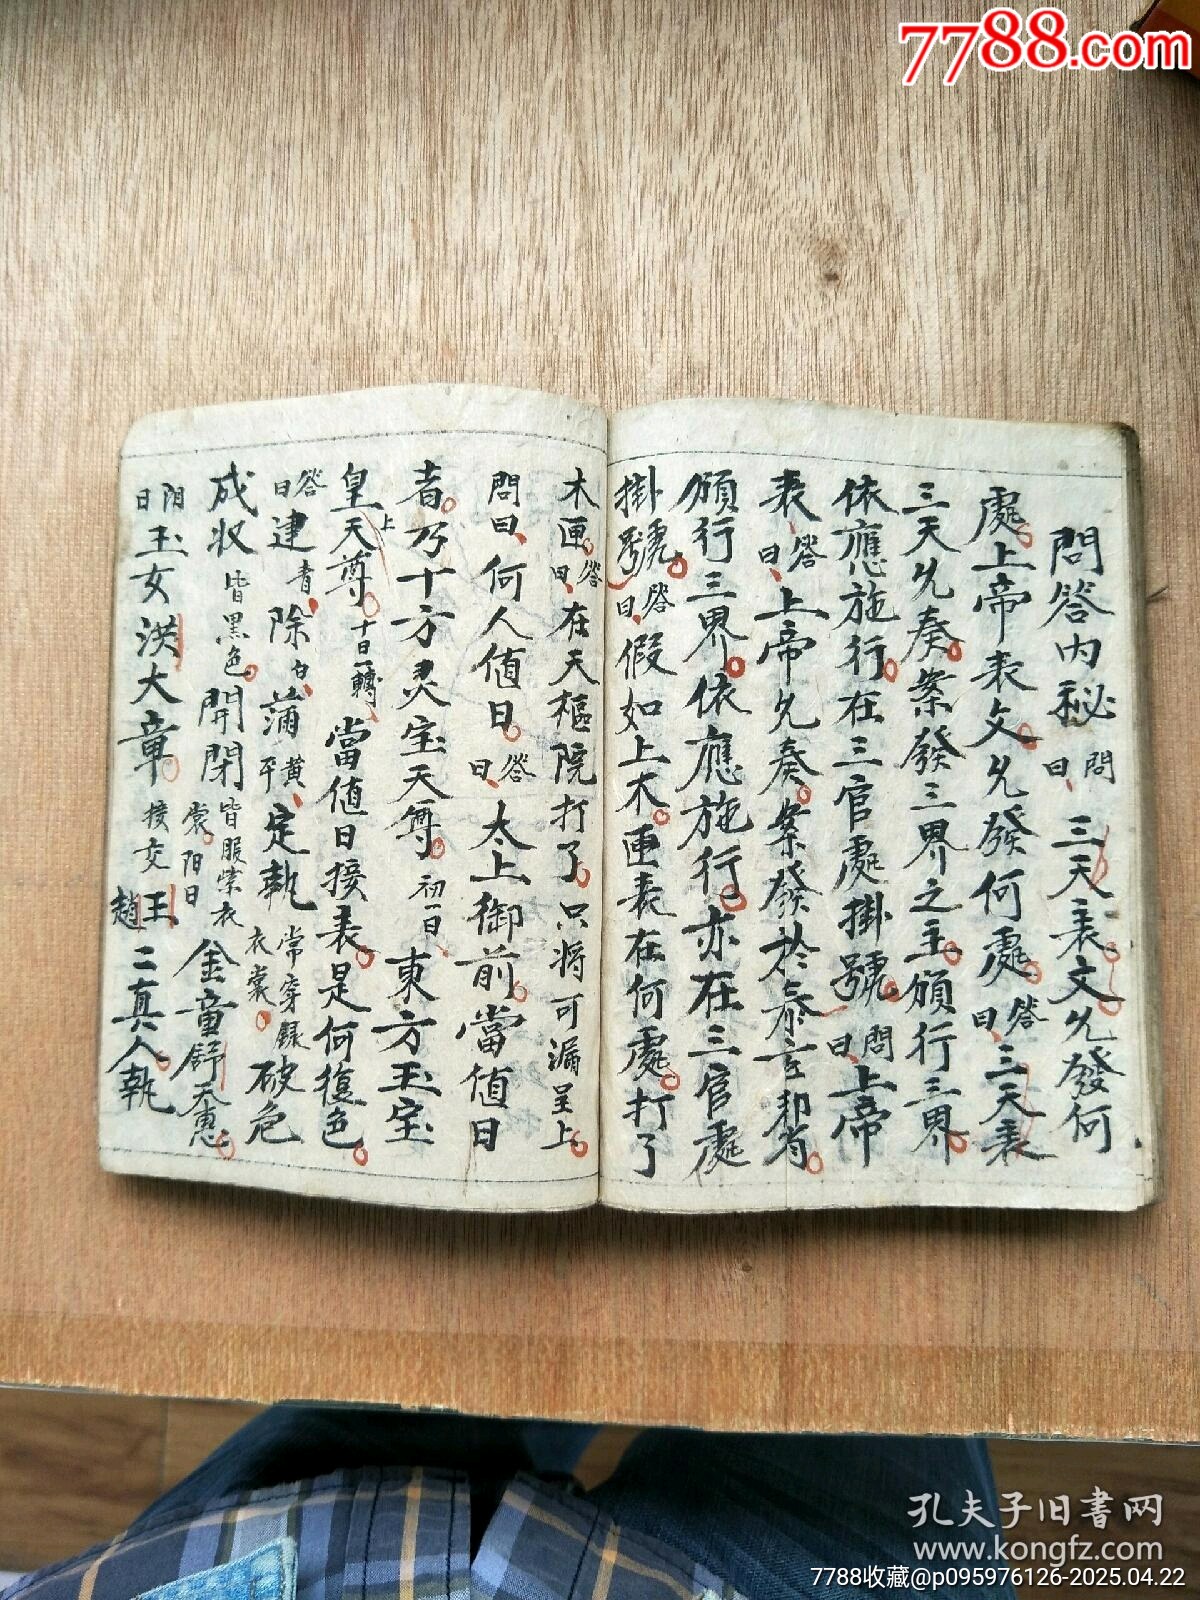 7788.com
問答内秘問曰三天表文允發何
處上帝表文允發何處答曰三天表
三天允奏案發三界之主頒行三界
依應施行在三官處掛號問曰上帝
表答曰上帝允奏案發於泰玄都省
頒行三界依應施行亦在三官處
掛號答曰假如上木匣表在何處打了
木匣答曰在天樞院打了只將可漏呈上
問曰何人值日答曰太上御前當值日
者乃十方灵宝天尊初一日東方玉宝
皇上天尊十日一轉當值日接表是何復色
答曰建青除白蒲黄平定執常穿録衣裳破危
成收皆黑色開閉皆服紫衣裳阳日金童舒天惠
阳日玉女洪大章接交王趙二真人執
孔夫子旧書网
www.kongfz.com
7788收藏@p095976126-2025.04.22